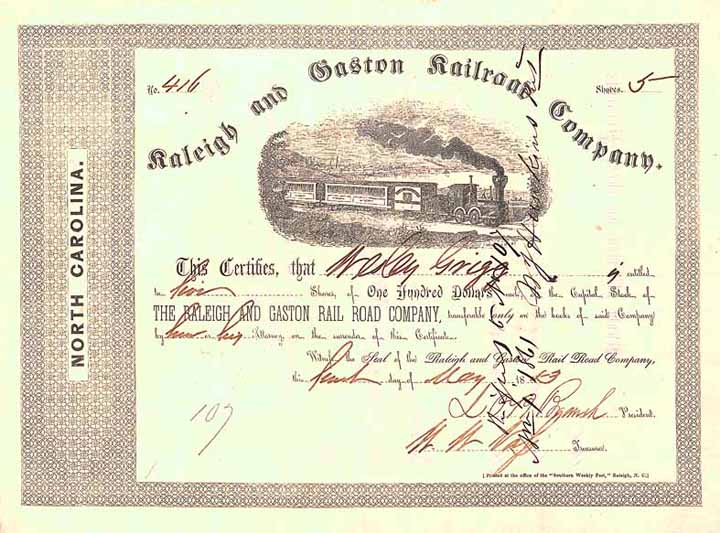 No. 416
Shares. 5
Raleigh and Gaston Railroad Company.
NORTH CAROLINA.
This Certifies, that Wesley Grigg is entitled
to five Shares, of One Hundred Dollars each, in the Capital Stock of
THE RALEIGH AND GASTON RAIL ROAD COMPANY, transferable only on the books of said Company
by him or his Attorney on the surrender of this Certificate.
Witness the Seal of the Raleigh and Gaston Rail Road Company,
this day of May 1853
President.
W W
Treasurer.
107
[ Printed at the office of the "Southern Weekly Post," Raleigh, N. C.]
1861
Hawkins